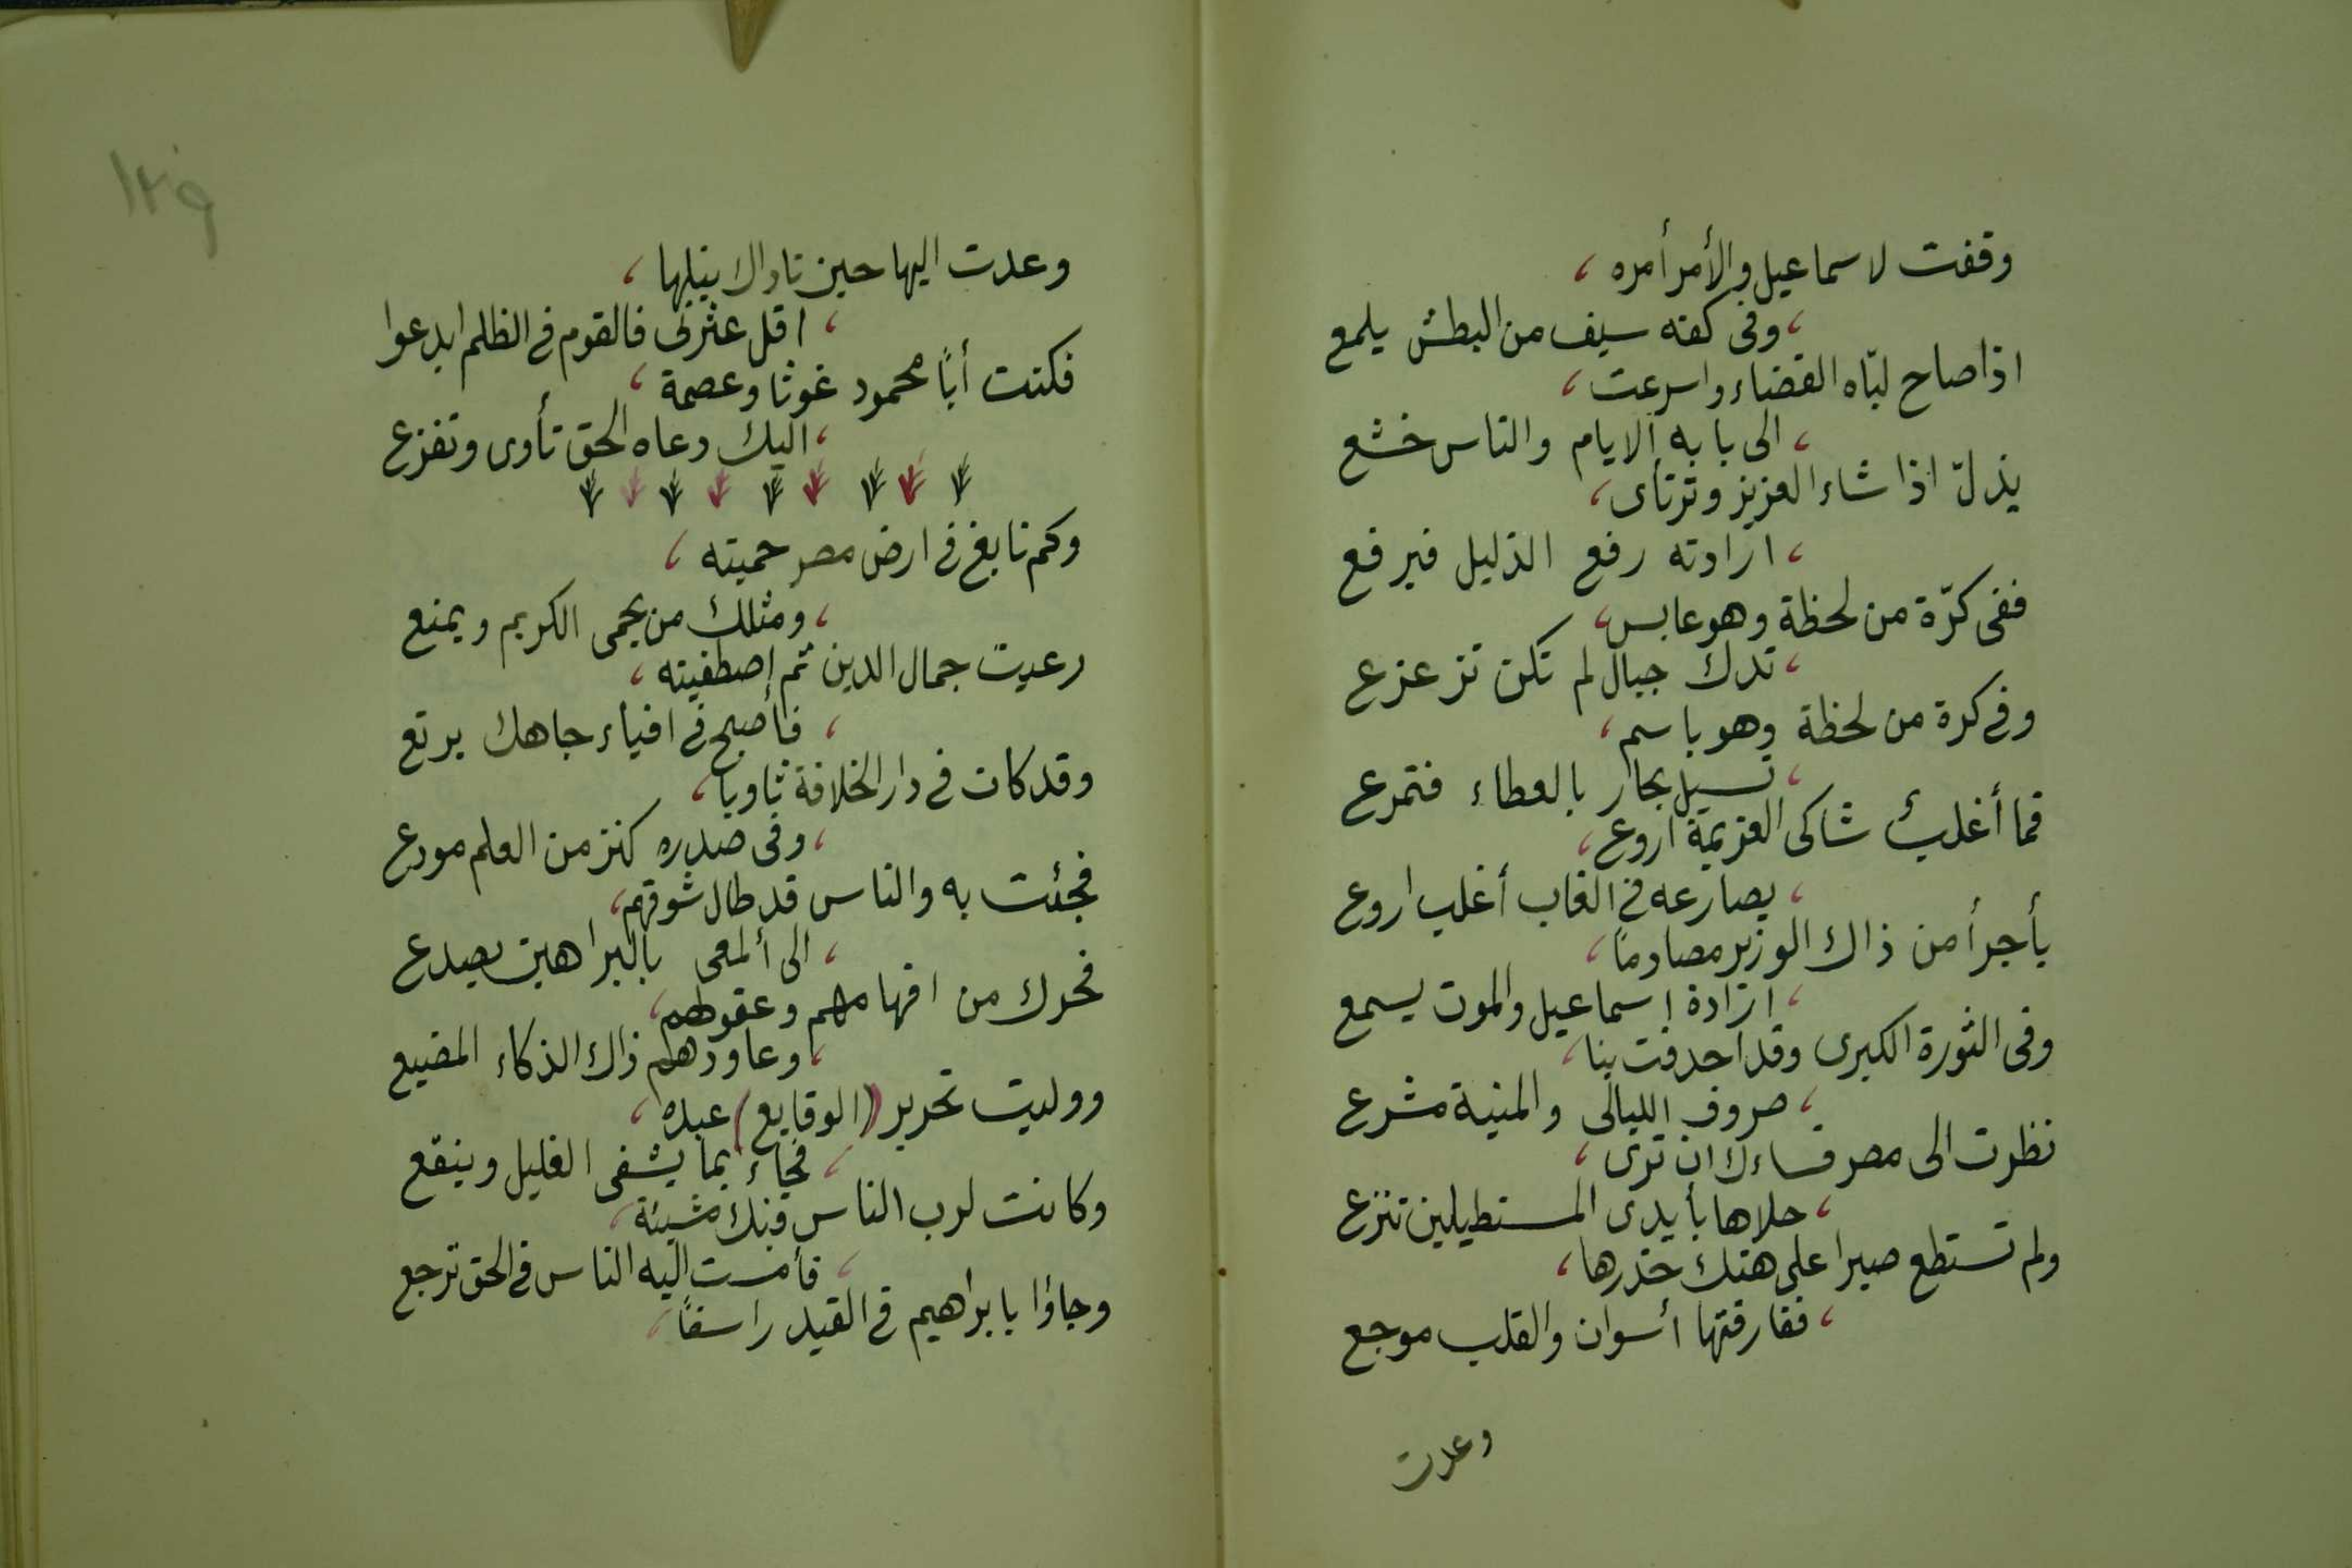 وقفت لاسماعيل والأمر أمره ،
، وفى كفه سيف من البطش يلمع
اذا صاح لبّاه القضاء واسرعت ،
، الى بابه الايام والناس خشع
يذلّ اذا شاء العزيز وترتأى ،
، ارادته رفع الذليل فيرفع
ففى كرّة من لحظة وهو عابس ،
، تدك جبال لم تكن تزعزع
وفى كرة من لحظة وهو باسم ،
، تسيل بحار بالعطاء فتمرع
فما أغلب شاكى العزيمة اروع ،
، يصارعه فى الغاب أغلب اروع
بأجرأ من ذاك الوزير مصادماً ،
، ارادة اسماعيل والموت يسمع
وفى الثورة الكبرى وقد احدقت بنا ،
، صروف الليالى والمنية مشرع
نظرت الى مصر فساءك ان ترى ،
، حلاها بأيدى المستطيلين تنزع
ولم تستطع صبرا على هتك خدرها ،
، ففارقتها أسوان والقلب موجع
وعدت
١٢٩
وعدت اليها حين ناداك نيلها ،
، اقل عثرتى فالقوم فى الظلم ابدعوا
فكنت أبًا محمود غوثا وعصمة ،
، اليك دعاه الحق تأوى وتفزع
وكم نابغ فى ارض مصر حميته ،
، ومثلك من يحمى الكريم ويمنع
رعيت جمال الدين ثم اصطفيته ،
، فأصبح فى افياء جاهك يرتع
وقد كان فى دار الخلافة ثاويا ،
، وفى صدره كنز من العلم مودع
فجئت به والناس قد طال شوقهم ،
، الى ألمعى بالبراهين يصدع
فحرك من افهامهم وعقولهم ،
، وعاودهم ذاك الذكاء المضيع
ووليت تحرير (الوقايع) عبده ،
، فجاء بما يشفى الغليل وينقع
وكانت لرب الناس فيك مشيئة ،
، فأمست اليه الناس فى الحق ترجع
وجاؤا بابراهيم فى القيد راسفاً ،